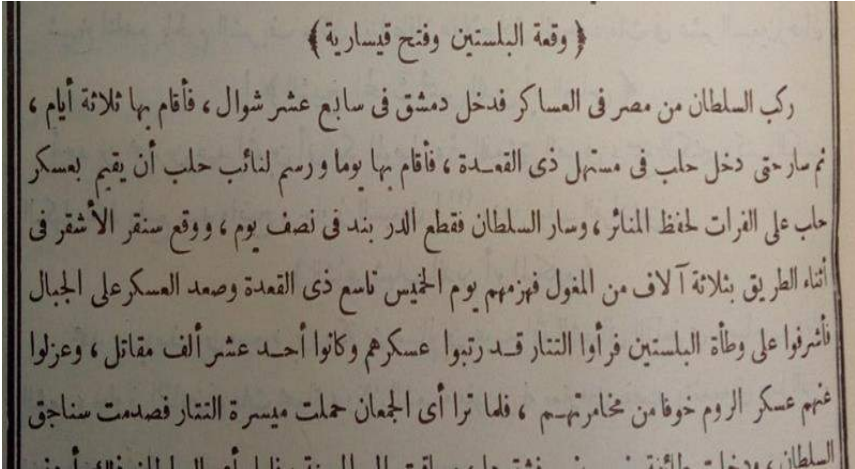 ﴿ وقعة البلستين وفتح قيسارية ﴾
ركب السلطان من مصر فى العساكر فدخل دمشق فى سابع عشر شوال ، فأقام بها ثلاثة أيام ،
ثم سار حتى دخل حلب فى مستهل ذى القعدة ، فأقام بها يوما ورسم لنائب حلب أن يقيم بعسكر
حلب على الفرات لحفظ المنائر ، وسار السلطان فقطع الدر بند فى نصف يوم ، ووقع سنقر الأشقر فى
أثناء الطريق بثلاثة آلاف من المغول فهزمهم يوم الخميس تاسع ذى القعدة وصعد العسكر على الجبال
فأشرفوا على وطأة البلستين فرأوا التتار قد رتبوا عسكرهم وكانوا أحد عشر ألف مقاتل ، وعزلوا
عنهم عسكر الروم خوفا من مخامرتهم ، فلما ترا أى الجمعان حملت ميسرة التتار فصدمت سناجق
السلطان ، ودخلت طائفة